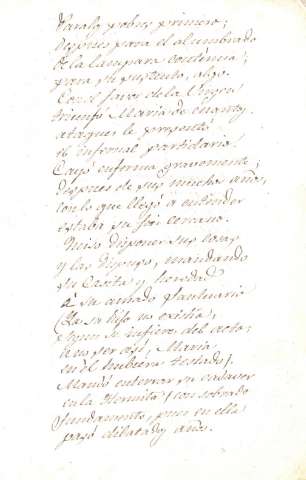 Para los pobres primero;
despues para el alumbrado
de la lampara continua;
para su sustento, algo.
Con el favor de la Virgen
triunfó Maria de cuantos
ataques le presentó
el infernal partidario.
Cayó enferma gravemente;
despues de sus muchos años,
con lo que llegó a entender
estaba su fin cercano.
Quiso disponer sus cosas
y las dispuso, mandando
su Casita y heredad
á su amado Santuario
(Ya su hijo no existia,
segun se infiere del acto;
á no ser asi, Maria
en él hubiera testado).
Mandó enterrar su cadaver
en la Hermita (con sobrado
fundamento, pues en ella
pasó dilatados años.